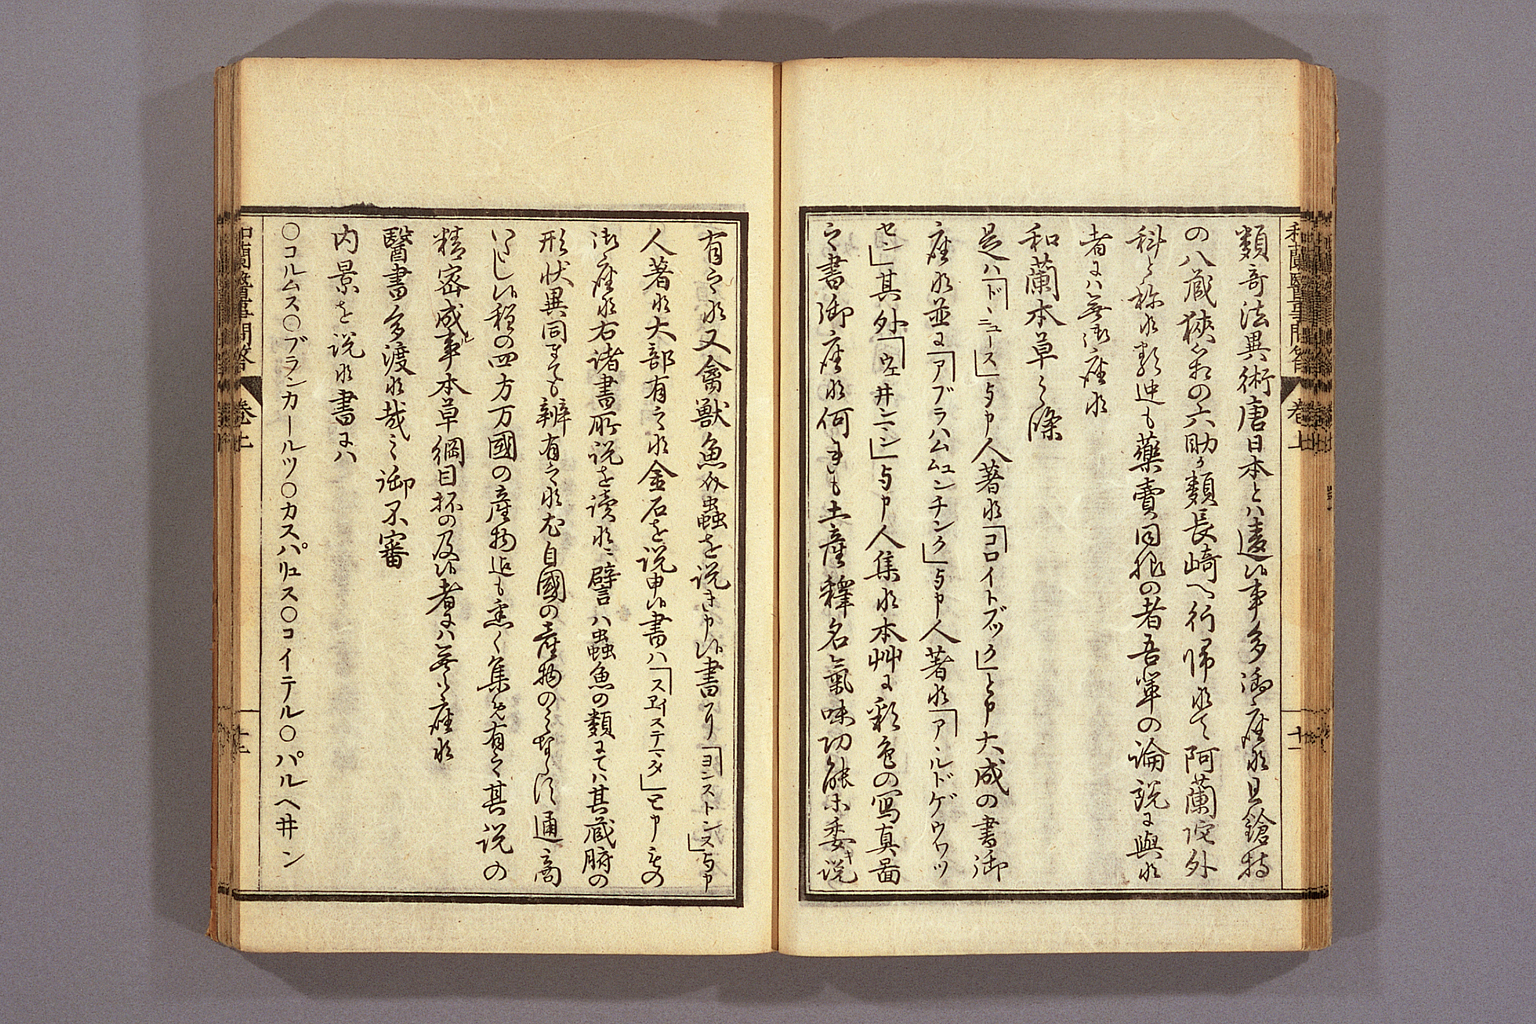 和蘭醫事問答 卷上 十一
類奇法異術唐日本とハ違候事多御座候且鎗持
の八蔵狹箱の六助か類長崎へ行帰候て阿蘭陀外
科と称候輩迄も藥賣同然の者吾輩の論説に與候
者にハ無御座候
和蘭本草之條
是ハ「ドヾニュース」与申人著候「コロイトブック」と申大成の書御
座候並に「アブラハムムュンチンク」与申人著候「アンルドゲウワッ
セン」其外「ウエインマン」与申人集候本艸に彩色の寫真畵
之書御座候何れも土產釋名氣味功能等委説
有之候又禽獣魚介蟲を説き申候書ハ「ヨンストンス」与申
人著候大部有之候金石を説申候書ハ「スワイステーヌ」と申もの
御座候右諸書所説を讀候に譬ハ蟲魚の類にてハ其蔵腑の
形状異同までも辨有之候尤自國の產物のみならす通商
いたし候程の四方万國の產物迄も悉く集め有之其説の
精密成事本草綱目杯の及候者にハ無之座候
醫書多渡候哉之御不審
内景を説候書にハ
〇コルムス〇ブランカールツ〇カスパリュス〇コイテル〇パルヘ井ン
和蘭醫事問答 卷上 十二